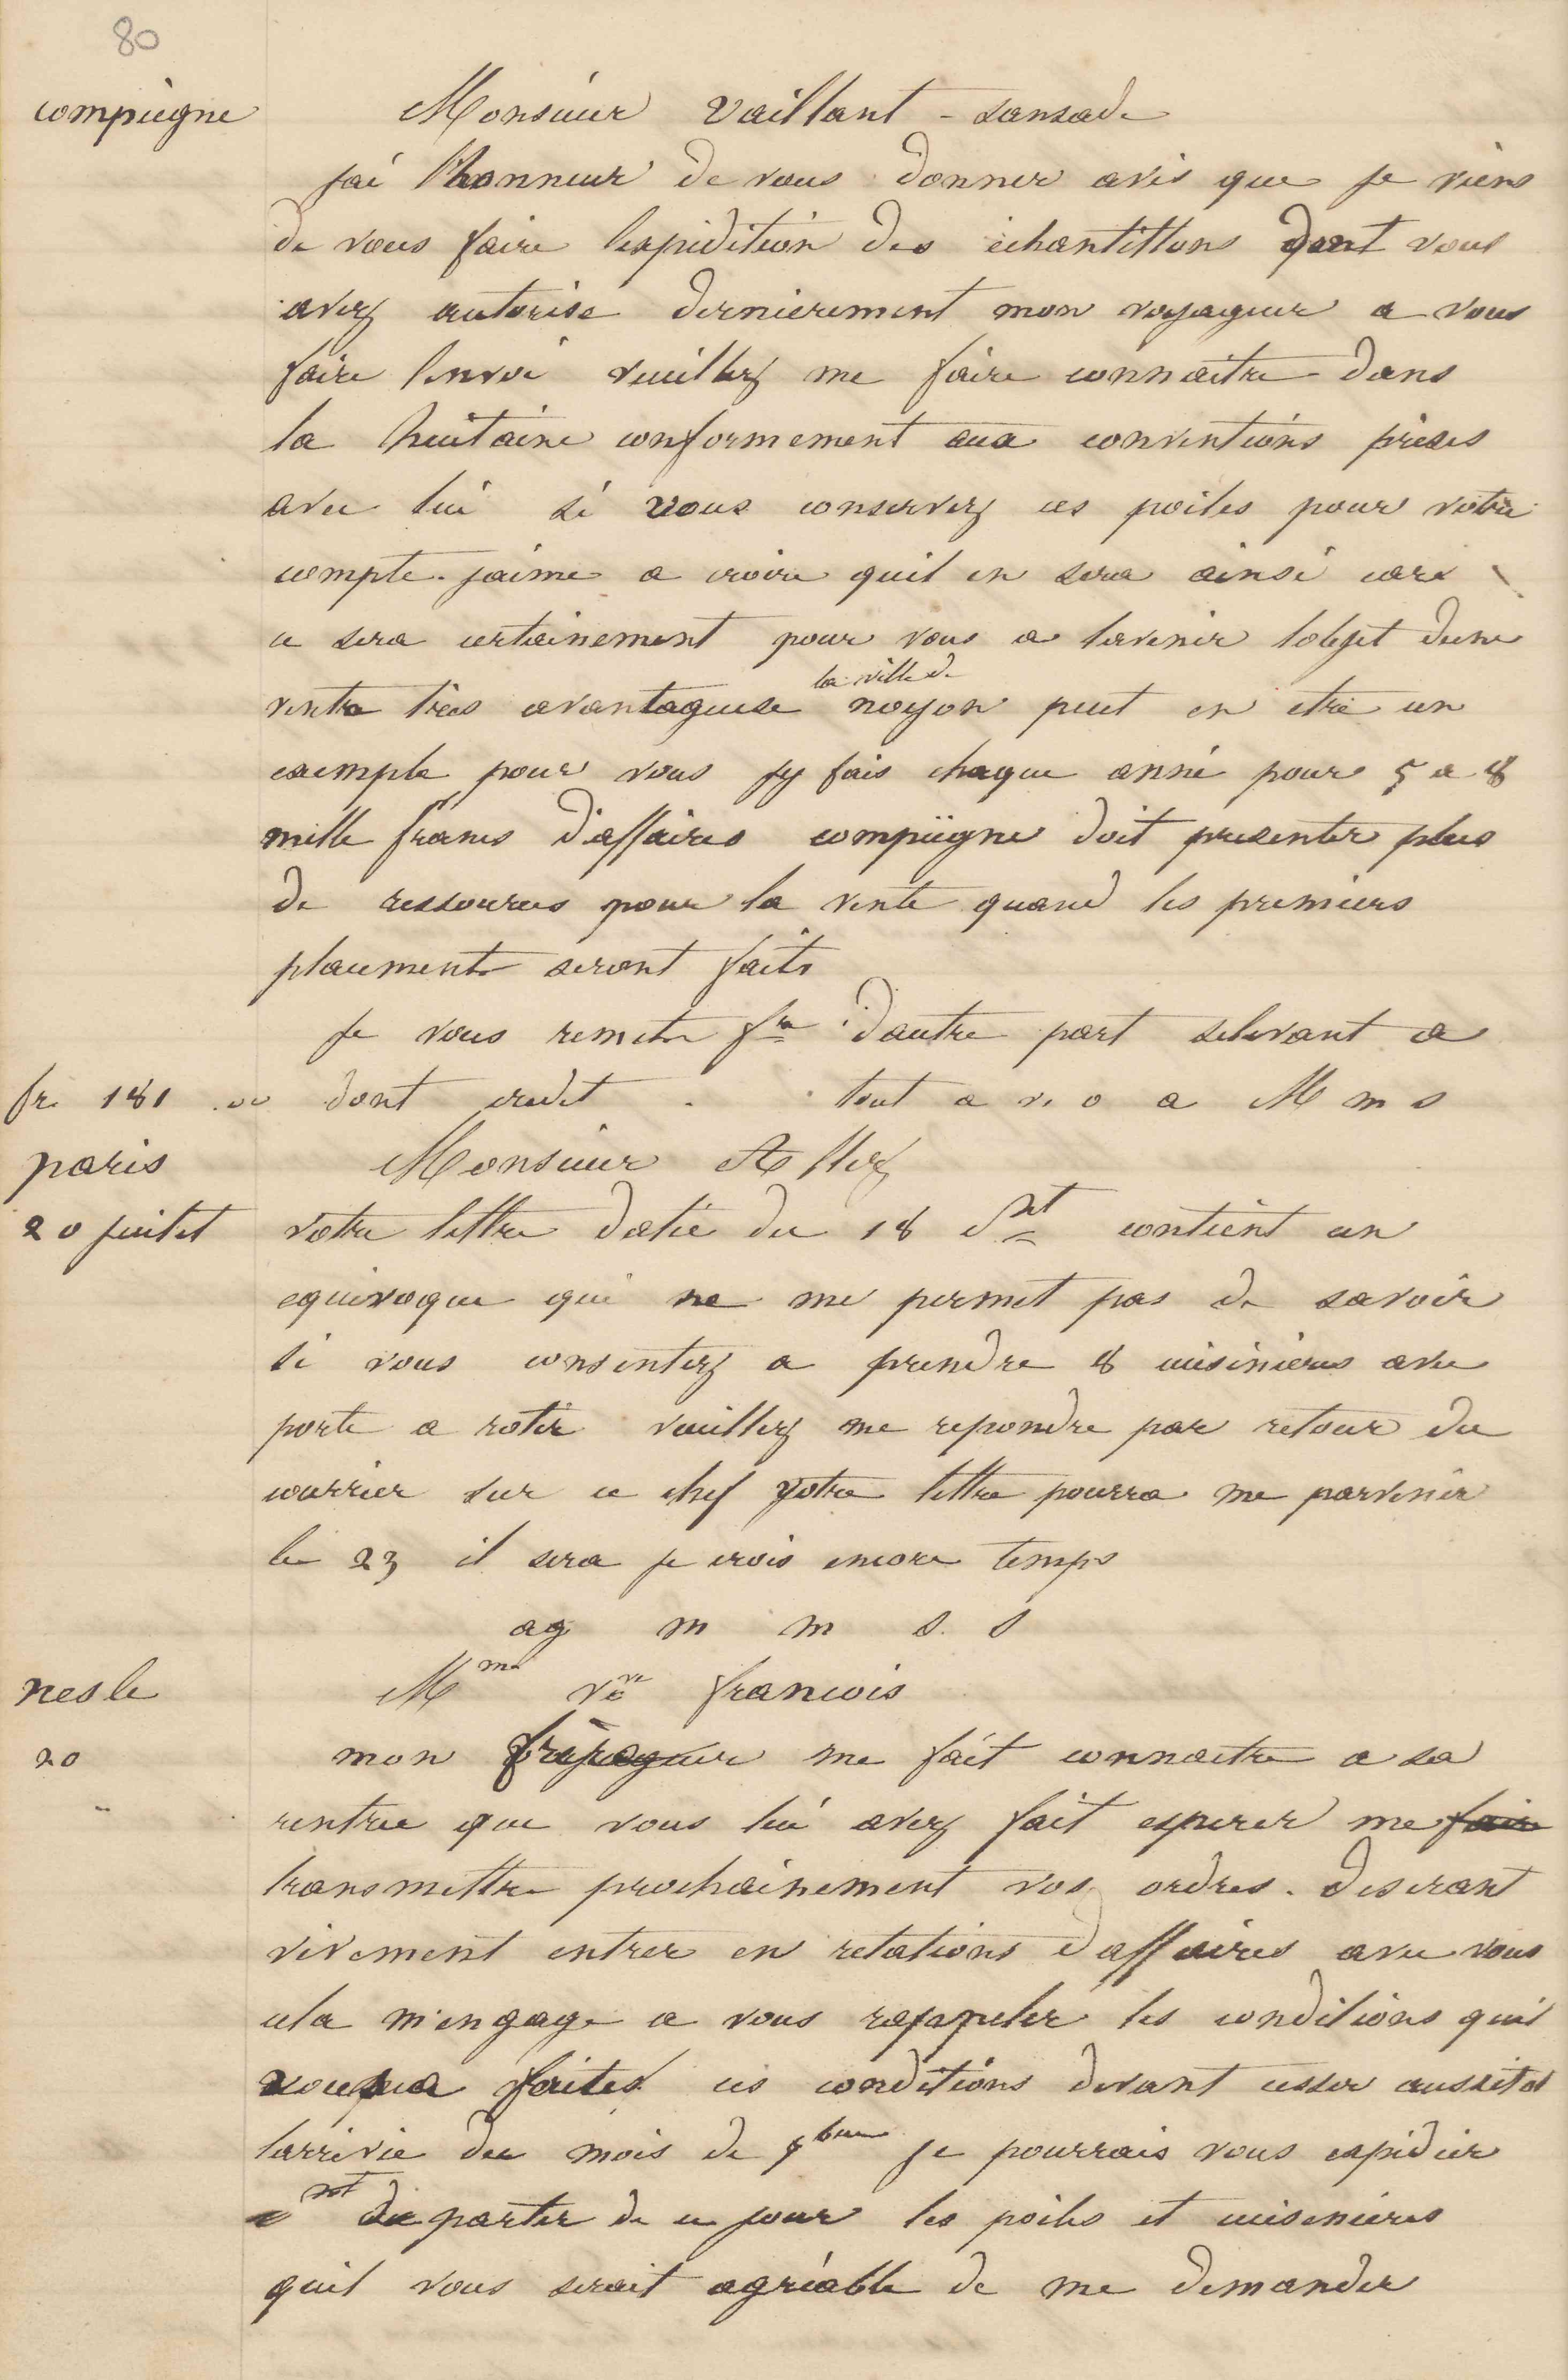 80
compiegne
Monsieur vaillant - sansade
jai lhonneur de vous donner avis que je viens
de vous faire lexpidition des echantillons dont vous
avez autorise dernierement mon voyageur a vous
faire lenvoi veuillez me faire connaitre dans
la huitaine conformement aux conventions prises
avec lui si vous conservez ces poiles pour votre
compte. jaime a croire quil en sera ainsi car
ce sera certainement pour vous a lavenir lobjet dune
la ville de
vente tres avantageuse noyon peut en etre un
exemple pour vous jy fais chaque anné pour 5 a 8
mille francs d'affaires compiègne doit presenter plus
de ressources pour la vente quand les premiers
placements seront faits
je vous remets fre d'autre part selevant a
fr 181 .. dont credit . tout a v. o a M m s
paris
Monsieur Allez
20 juilet votre lettre datée du 18 ct contient un
equivoque qui ne me permet pas de savoir
si vous consentez a prendre 8 cuisinieres avec
porte a rotir veuillez me repondre par retour du
courrier sur ce chef votre lettre pourra me parvenir
le 23 il sera je crois encore temps
ag m m s. s
nesle
Mme vve francois
20 mon me fait connaitre a sa
rentree que vous lui avez fait esperer me faire
transmettre prochainement vos ordres. deserant
vivement entrer en relations daffaires avec vous
cela m'engage a vous rappeler les conditions quil
vous a faites ces conditions devant cesser aussitot
larrivée du mois de 7bre je pourrais vous expédier
a partir de ce jour les poiles et cuisinieres
quil vous serait agréable de me demander